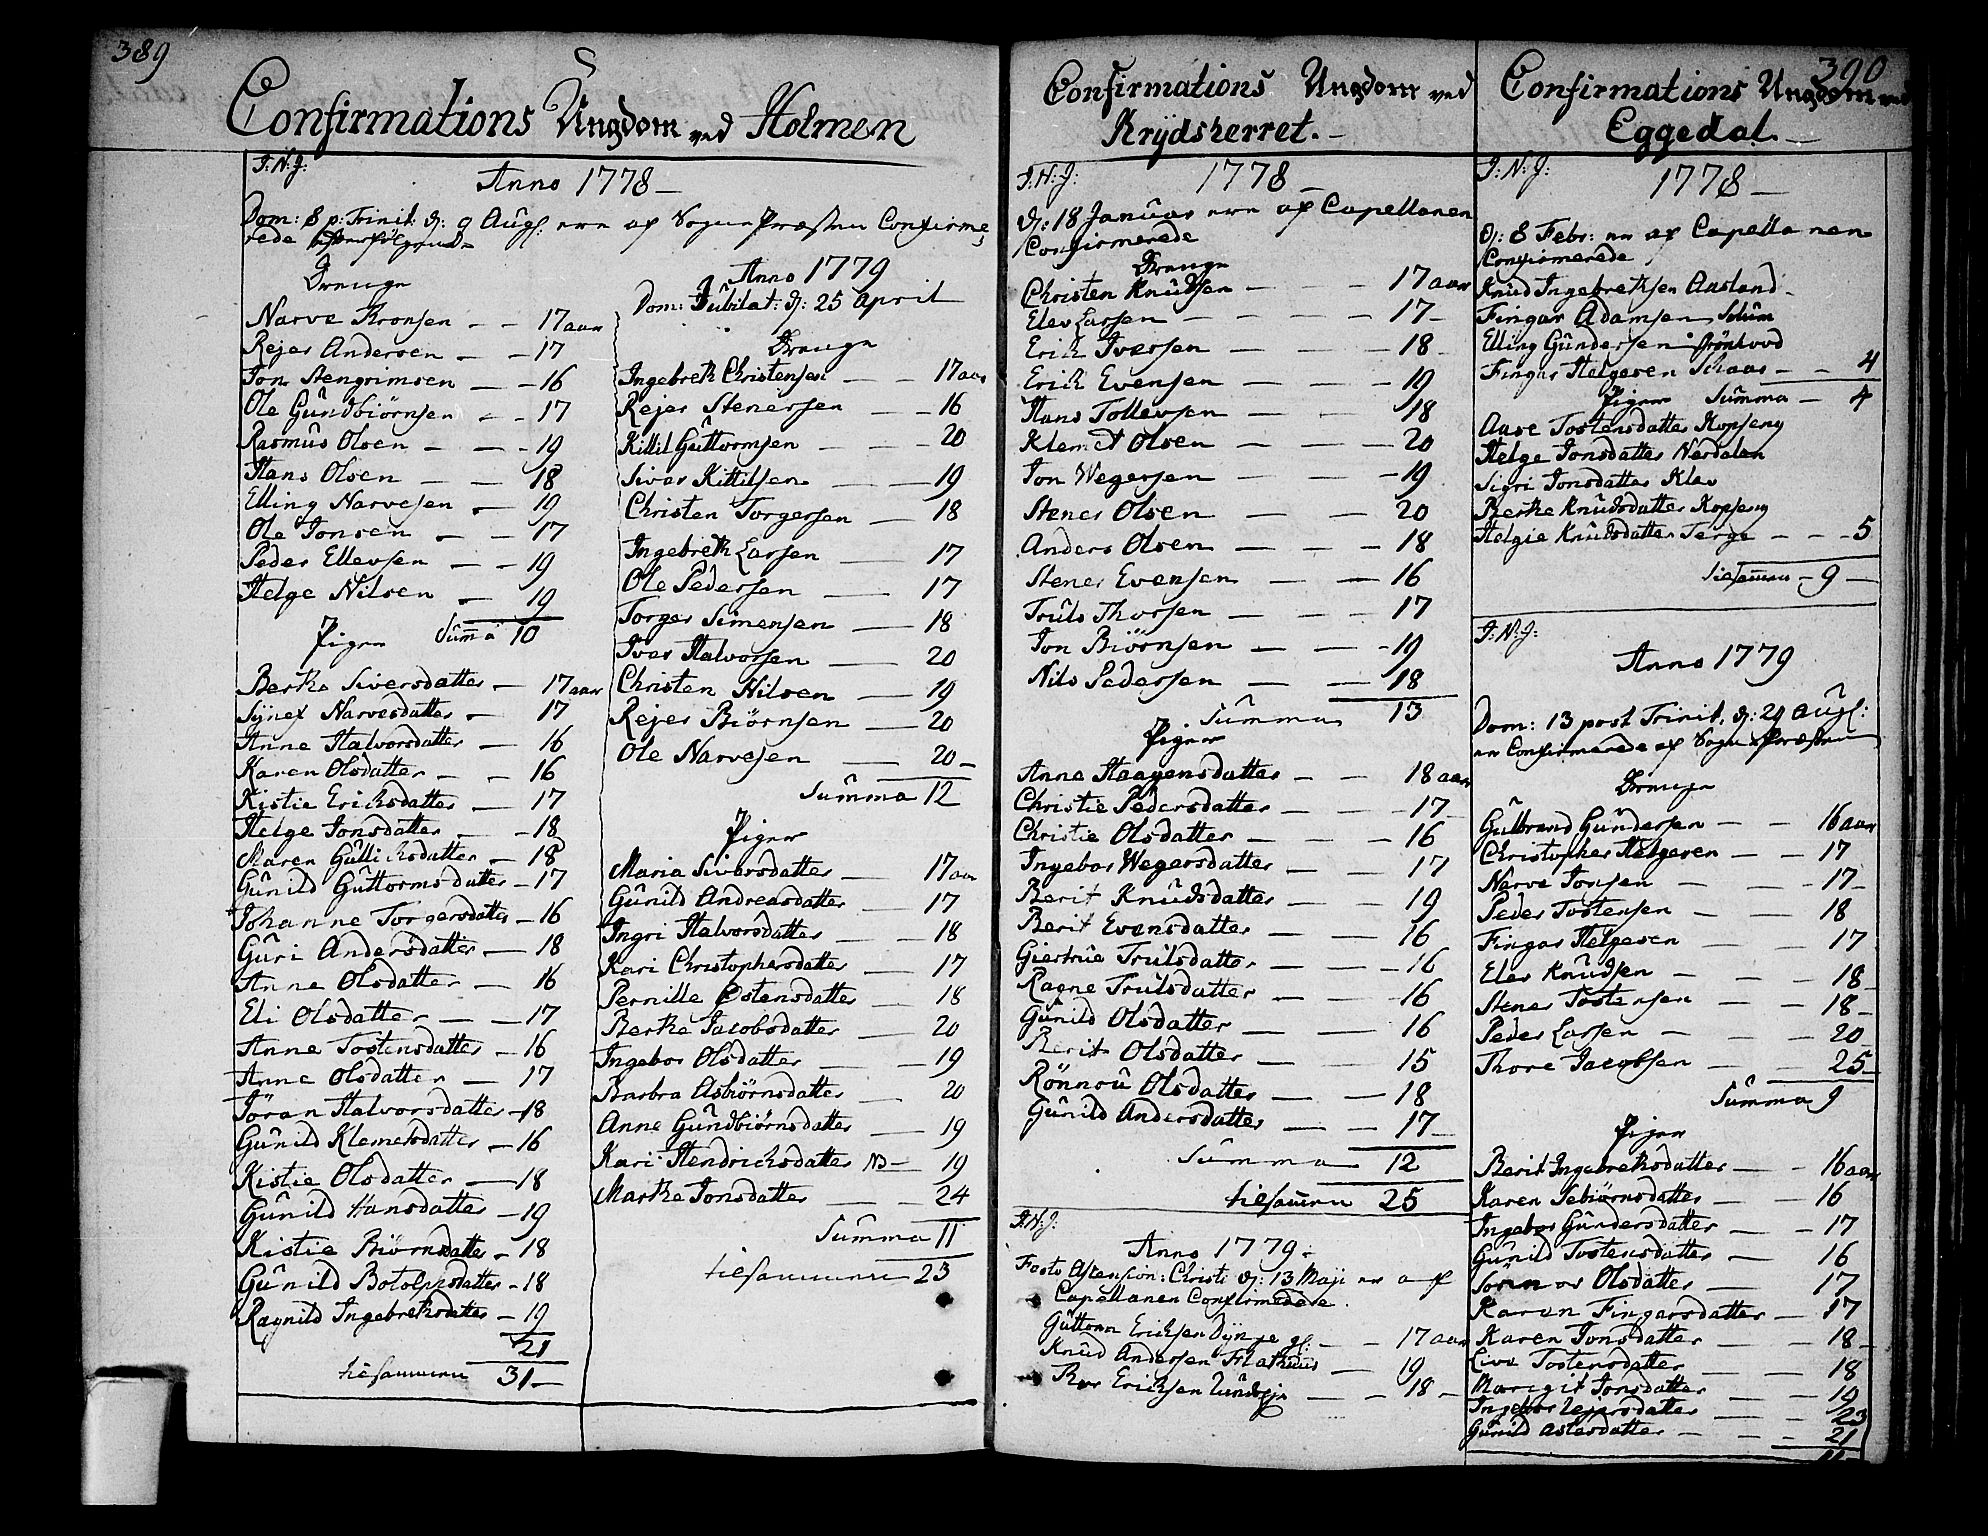 389
Confirmations Ungdom ved Holmen
I: N: J:
Anno 1778
Dom: 8 p: Trinit: d: 9 Aug: ere af Sogne Præsten Confirme-
rede efterfølgende
Drenge
Narve Aronsen - - 17 aar
Rejer Andersen - - 17
Jon Stengrimsen - - 16
Ole Gundbiörnsen - - 17
Rasmus Olsen - - - 19
Hans Olsen - - 18
Elling Narvesen - 19
Ole Jonsen - - 17
Peder Ellevsen - - 19
Helge Nilsen - 19
Piger Summa 10
Berthe Siversdatter - 17 aar
Synev Narvesdatter - 17
Anne Halvorsdatter - 16
Karen Olsdatter - - 16
Kistie Ericksdatter - 17
Helge Jonsdatter - - 18
Maren Gullichsdatter - 18
Gunild Guttormsdatter - 17
Johanne Torgersdatter - 16
Guri Andersdatter - 18
Anne Olsdatter - 16
Eli Olsdatter - - 17
Anne Tostensdatter - 16
Anne Olsdatter - 17
Jöran Halvorsdatter - 18
Gunild Klemetsdatter - 16
Kistie Olsdatter - 18
Gunild Hansdatter - 19
Kistie Biörnsdatter - 18
Gunild Botolphsdatter - 18
Ragnild Ingebrethsdatter - 19
21
tilsammen 31 -
Anno 1779
Dom: Jubilat: d: 25 April
Drenge
Ingebreth Christensen - - 17 aar
Rejer Stenersen - - 16
Kittil Guttormsen - - 20
Siver Kittilsen - - 19
Christen Torgersen - 18
Ingebreth Larsen - 17
Ole Pedersen - 17
Torger Simensen - 18
Iver Halvorsen - 20
Christen Nilsen - 19
Rejer Biörnsen - 20
Ole Narvesen - 20 -
Summa 12
Piger
Maria Siversdatter - 17 aar
Gunild Andreasdatter - 17
Ingri Halvorsdatter - 18
Kari Christophersdatter - 17
Pernille Østensdatter - 18
Berthe Jacobsdatter - 20
Ingebor Olsdatter - - 19
Barbra Asbiörnsdatter - 20
Anne Gundbiörnsdatter - 19
Kari Hendrichsdatter NB - 19
Marthe Jonsdatter - - 24
Summa 11
tilsammen 23
Confirmations Ungdom ved
Krydsherret. -
I: N: J: 1778 -
d: 18 Januar ere af Capellanen
Confirmerede
Drenge
Christen Knudsen - - - 17 aar
Elev Larsen - - - - 17 -
Erich Iversen - - - 18
Erich Evensen - - - 19
Hans Tollevsen - - - 18
Klemet Olsen - - - 20
Jon Wegersen - - - 19
Stener Olsen - - 20
Anders Olsen - - - 18
Stener Evensen - - 16
Truls Thorsen - - - 17
Jon Biörnsen - - - 19
Nils Pedersen - - 18
Summa 13
Piger
Anne Haagensdatter - - 18 aar
Christie Pedersdatter - - - 17 -
Christie Olsdatter - - - 16
Ingebor Wegersdatter - - 17
Berit Knudsdatter - - 19
Berit Evensdatter - - 16
Giertrue Trulsdatter - - - 16
Ragne Trulsdatter - - - 16
Gunild Olsdatter - - 16
Berit Olsdatter - - 15
Rönnou Olsdatter - - 18
Gunild Andersdatter - - 17 -
Summa 12
tilsammen 25
I: N: J:
Anno 1779 -
Festo Ascension: Christi d: 13 Maji er af
Capellanen Confirmerede.
Guttorm Ericksen - - 17 aar
Knud Andersen - 19
Ericksen - - 18 -
390
Confirmations Ungdom ved
Eggedal. -
I: N: J: 1778 -
d: 8 Febr: ere af Capellanen
Confirmerede
Knud Ingebrethsen Aasland -
Fingar Adamsen Solum
Elling Gundersen Grönhovd
Fingar Helgesen Skaar - - 4
Piger Summa - 4
Aase Tostensdatter Kopseng
Helge Jonsdatter Nerdalen
Sigri Jonsdatter Klev
Berthe Knudsdatter Kopseng
Helgie Knudsdatter Terge - - - 5
tilsammen - 9 -
I: N: J:
Anno 1779
Dom: 13 post Trinit. d: 29 Aug:
ere Confirmerede af Sogne Præsten
Drenge
Gulbrand Gundersen - - 16 aar
Christopher Helgesen - - 17
Narve Jonsen - - - 17 -
Peder Tostensen - - 18
Fingar Helgesen - - 17
Elev Knudsen - - 18
Stener Tostensen - - 18 -
Peder Larsen - - - 20
Thore Jacobsen - - 25 -
Summa 9
Piger
Berit Ingebrethsdatter - - 16 aar
Karen Tebiörnsdatter - - 16
Ingebor Gundersdatter - - 17
Gunild Tostensdatter - 16
Olsdatter - 17
Karen Fingarsdatter - 17
Karen Jonsdatter - - 18 -
Live Tostensdatter - - 18
Margit Jonsdatter - - 19
Ingebor Rejersdatter - - 23
Gunild Aslesdatter - - - 21
11